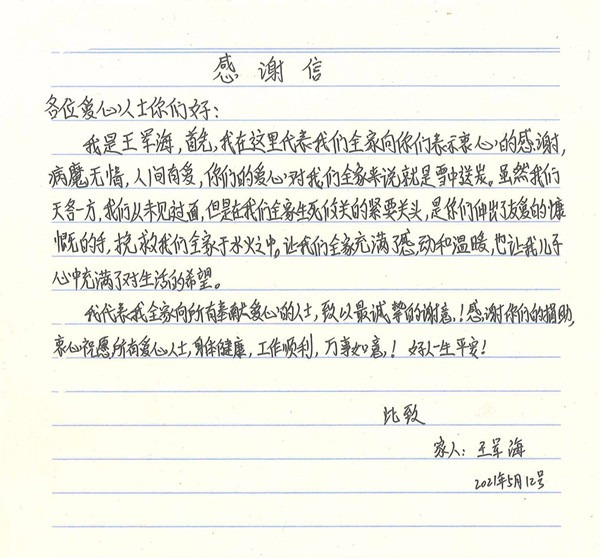 感谢信
各位爱心人士你们好：
我是王军海，首先，我在这里代表我们全家向你们表示衷心的感谢，
病魔无情，人间有爱，你们的爱心对我们全家来说就是雪中送炭。虽然我们
天各一方，我们从未见过面，但是在我们全家生死攸关的紧要关头，是你们伸出了友爱的慷
慨的手，挽救我们全家于水火之中。让我们全家充满了感动和温暖，也让我儿子
心中充满了对生活的希望。
我代表我全家向所有奉献爱心的人士，致以最诚挚的谢意！感谢你们的捐助，
衷心祝愿所有爱心人士，身体健康，工作顺利，万事如意！好人一生平安！
比致
家人：王军海
2021年5月12号